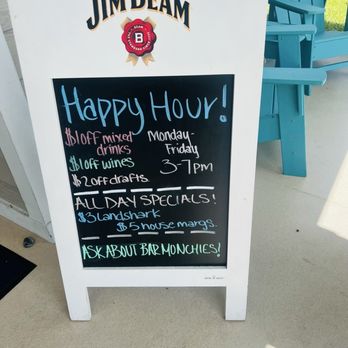 JIM BEAM
B
Happy Hour!
$1 off mixed drinks
Monday-Friday
3-7pm
$1 off wines
$2 off drafts
ALL DAY SPECIALS!
$3 landshark
$5 house margs.
ASK ABOUT BAR MONCHIES!